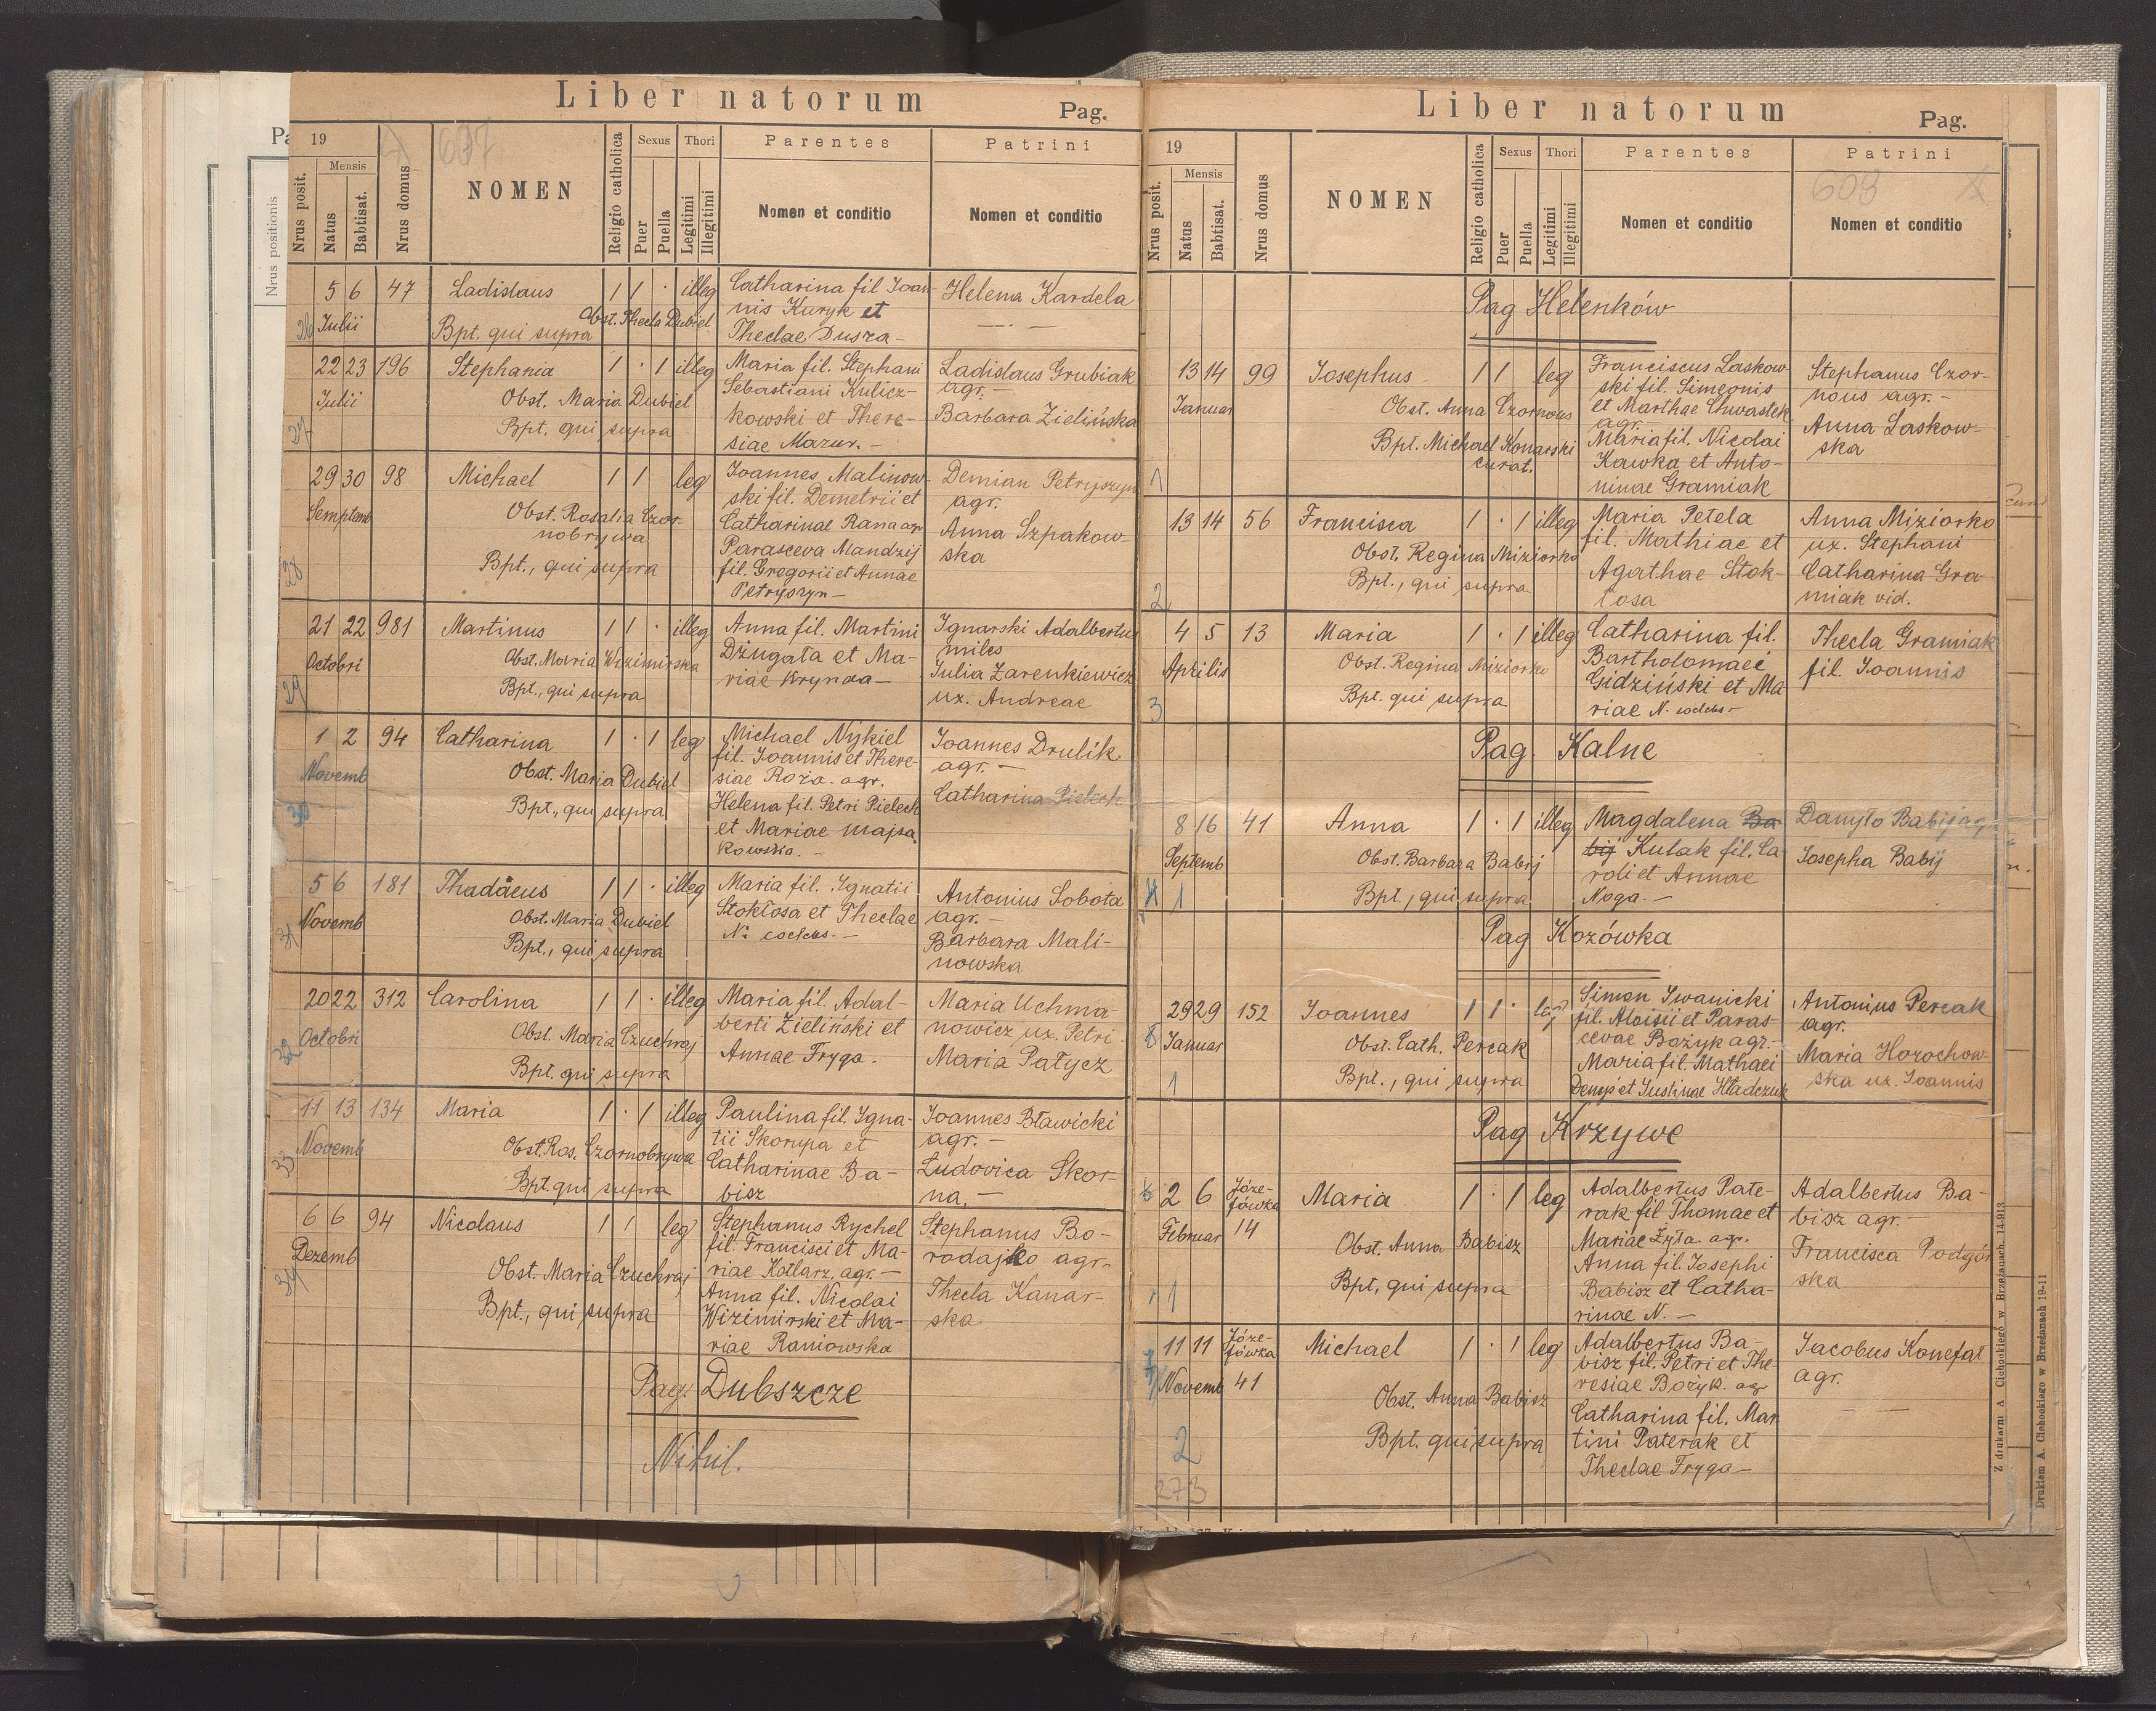 Liber natorum
Pag.
607
19
Nrus posit.
Mensis
Natus
Babtisat.
Nrus domus
NOMEN
Religio catholica
Sexus
Puer
Puella
Thori
Legitimi
Illegitimi
Parentes
Nomen et conditio
Patrini
Nomen et conditio
Nrus positionis
26
5 6 47 Ladislaus 1 1 · illeg
Julii
Obst. Thecla Dubiel
Bpt. qui supra
Catharina fil Joan-
nis Kuryk et
Theclae Dusza-
Helena Kardela
27
22 23 196 Stephania 1 · 1 illeg
Julii
Obst. Maria Dubiel
Bpt. qui supra
Maria fil. Stephani
Sebastiani Kulicz-
kowski et There-
siae Mazur. -
Ladislaus Grubiak
agr. -
Barbara Zielińska
28
29 30 98 Michael 1 1 leg
Semptemb
Obst. Rosalia Czor-
nobrywa
Bpt., qui supra
Joannes Malinow-
ski fil. Demetrii et
Catharinae Rana agr
Parasceva Mandzij
fil. Gregorii et Annae
Petryszyn -
Demian Petryszyn
agr.
Anna Szpakow-
ska
29
21 22 981 Martinus 1 1 · illeg
Octobri
Obst. Maria Wizimirska
Bpt., qui supra
Anna fil. Martini
Dżugała et Ma-
riae
Ignarski Adalbertus
miles
Julia Zarenkiewicz
ux. Andreae
30
1 2 94 Catharina 1 · 1 leg
Novemb
Obst. Maria Dubiel
Bpt., qui supra
Michael Nykiel
fil. Joannis et There-
siae Roża. agr.
Helena fil. Petri Pielech
et Mariae Majsa
kowska. -
Joannes Drulik
agr. -
Catharina Pielech
31
5 6 181 Thadäeus 1 1 · illeg
Novemb
Obst. Maria Dubiel
Bpt., qui supra
Maria fil. Ignatii
Stokłosa et Theclae
N.
Antonius Sobota
agr. -
Barbara Mali-
nowska
32
20 22 312 Carolina 1 1 · illeg
Octobri
Obst. Maria Czuchraj
Bpt. qui supra
Maria fil. Adal-
berti Zieliński et
Annae Fryga.
Maria Uchma-
nowicz ux. Petri
Maria Patycz
33
11 13 134 Maria 1 · 1 illeg
Novemb
Obst. Ros. Czornobrywa
Bpt. qui supra
Paulina fil. Igna-
tii Skorupa et
Catharinae Ba-
bisz
Joannes Bławicki
agr. -
Ludovica Skor-
na, -
34
6 6 94 Nicolaus 1 1 leg
Dezemb
Obst. Maria Czuchraj
Bpt., qui supra
Stephanus Rychel
fil. Francisci et Ma-
riae Kotlarz, agr. -
Anna fil. Nicolai
Wizimirski et Ma-
riae Raniowska
Stephanus Bo-
rodajko agr.
Thecla Kanar-
ska
Pag. Dubszcze
Nihil.
Liber natorum
Pag.
609
19
Nrus posit.
Mensis
Natus
Babtisat.
Nrus domus
NOMEN
Religio catholica
Sexus
Puer
Puella
Thori
Legitimi
Illegitimi
Parentes
Nomen et conditio
Patrini
Nomen et conditio
Pag Helenków
1
13 14 99 Josephus 1 1 leg
Januar
Obst. Anna Czornous
Bpt. Michael Konarski
curat.
Franciscus Laskow-
ski fil. Simeonis
et Marthae Chwastek
agr.
Maria fil. Nicolai
Kawka et Anto-
ninae Gramiak
Stephanus Czor-
nous agr. -
Anna Laskow-
ska
2
13 14 56 Francisca 1 · 1 illeg
Obst. Regina Miziorko
Bpt., qui supra
Maria Petela
fil. Mathiae et
Agathae Stok-
łosa
Anna Miziorko
ux. Stephani
Catharina Gra-
miak vid.
3
4 5 13 Maria 1 · 1 illeg
Aprilis
Obst. Regina Miziorko
Bpt. qui supra
Catharina fil.
Bartholomaei
Gidziński et Ma
riae N.
Thecla Gramiak
fil. Joannis
Pag. Kalne
8 16 41 Anna 1 · 1 illeg
Septemb
Obst. Barbara Babij
Bpt., qui supra
1
Magdalena Ba
bij Kulak fil. Ca-
roli et Annae
Noga. -
Danyło Babij agr
Josepha Babij
Pag Kozówka
29 29 152 Joannes 1 1 · leg
Januar
Obst. Cath. Percak
Bpt., qui supra
1
Simon Iwanicki
fil. Aloisii et Paras-
cevae Bożyk agr. -
Maria fil. Mathaei
Denys et Justinae Hładczuk
Antonius Percak
agr.
Maria Horochow-
ska ux. Joannis
Pag Krzywe
6
2 6 Józe-
fówka
14 Maria 1 · 1 leg
Februar
Obst. Anna Babisz
Bpt, qui supra
1
Adalbertus Pate-
rak fil. Thomae et
Mariae Żyła. agr.
Anna fil. Josephi
Babisz et Catha-
rinae N. -
Adalbertus Ba-
bisz agr. -
Francisca Podgór
ska
7
11 11 Józe-
fówka
41 Michael 1 · 1 leg
Novemb
Obst. Anna Babisz
Bpt. qui supra
2
273
Adalbertus Ba-
bisz fil. Petri et The-
resiae Bożyk. agr
Catharina fil. Mar
tini Paterak et
Theclae Fryga -
Jacobus Konefał
agr.
Z drukarni A Ciehockiego w Brzeżanach. 14-913
Drukiem A. Ciehockiego w Brzeżanach 19-11